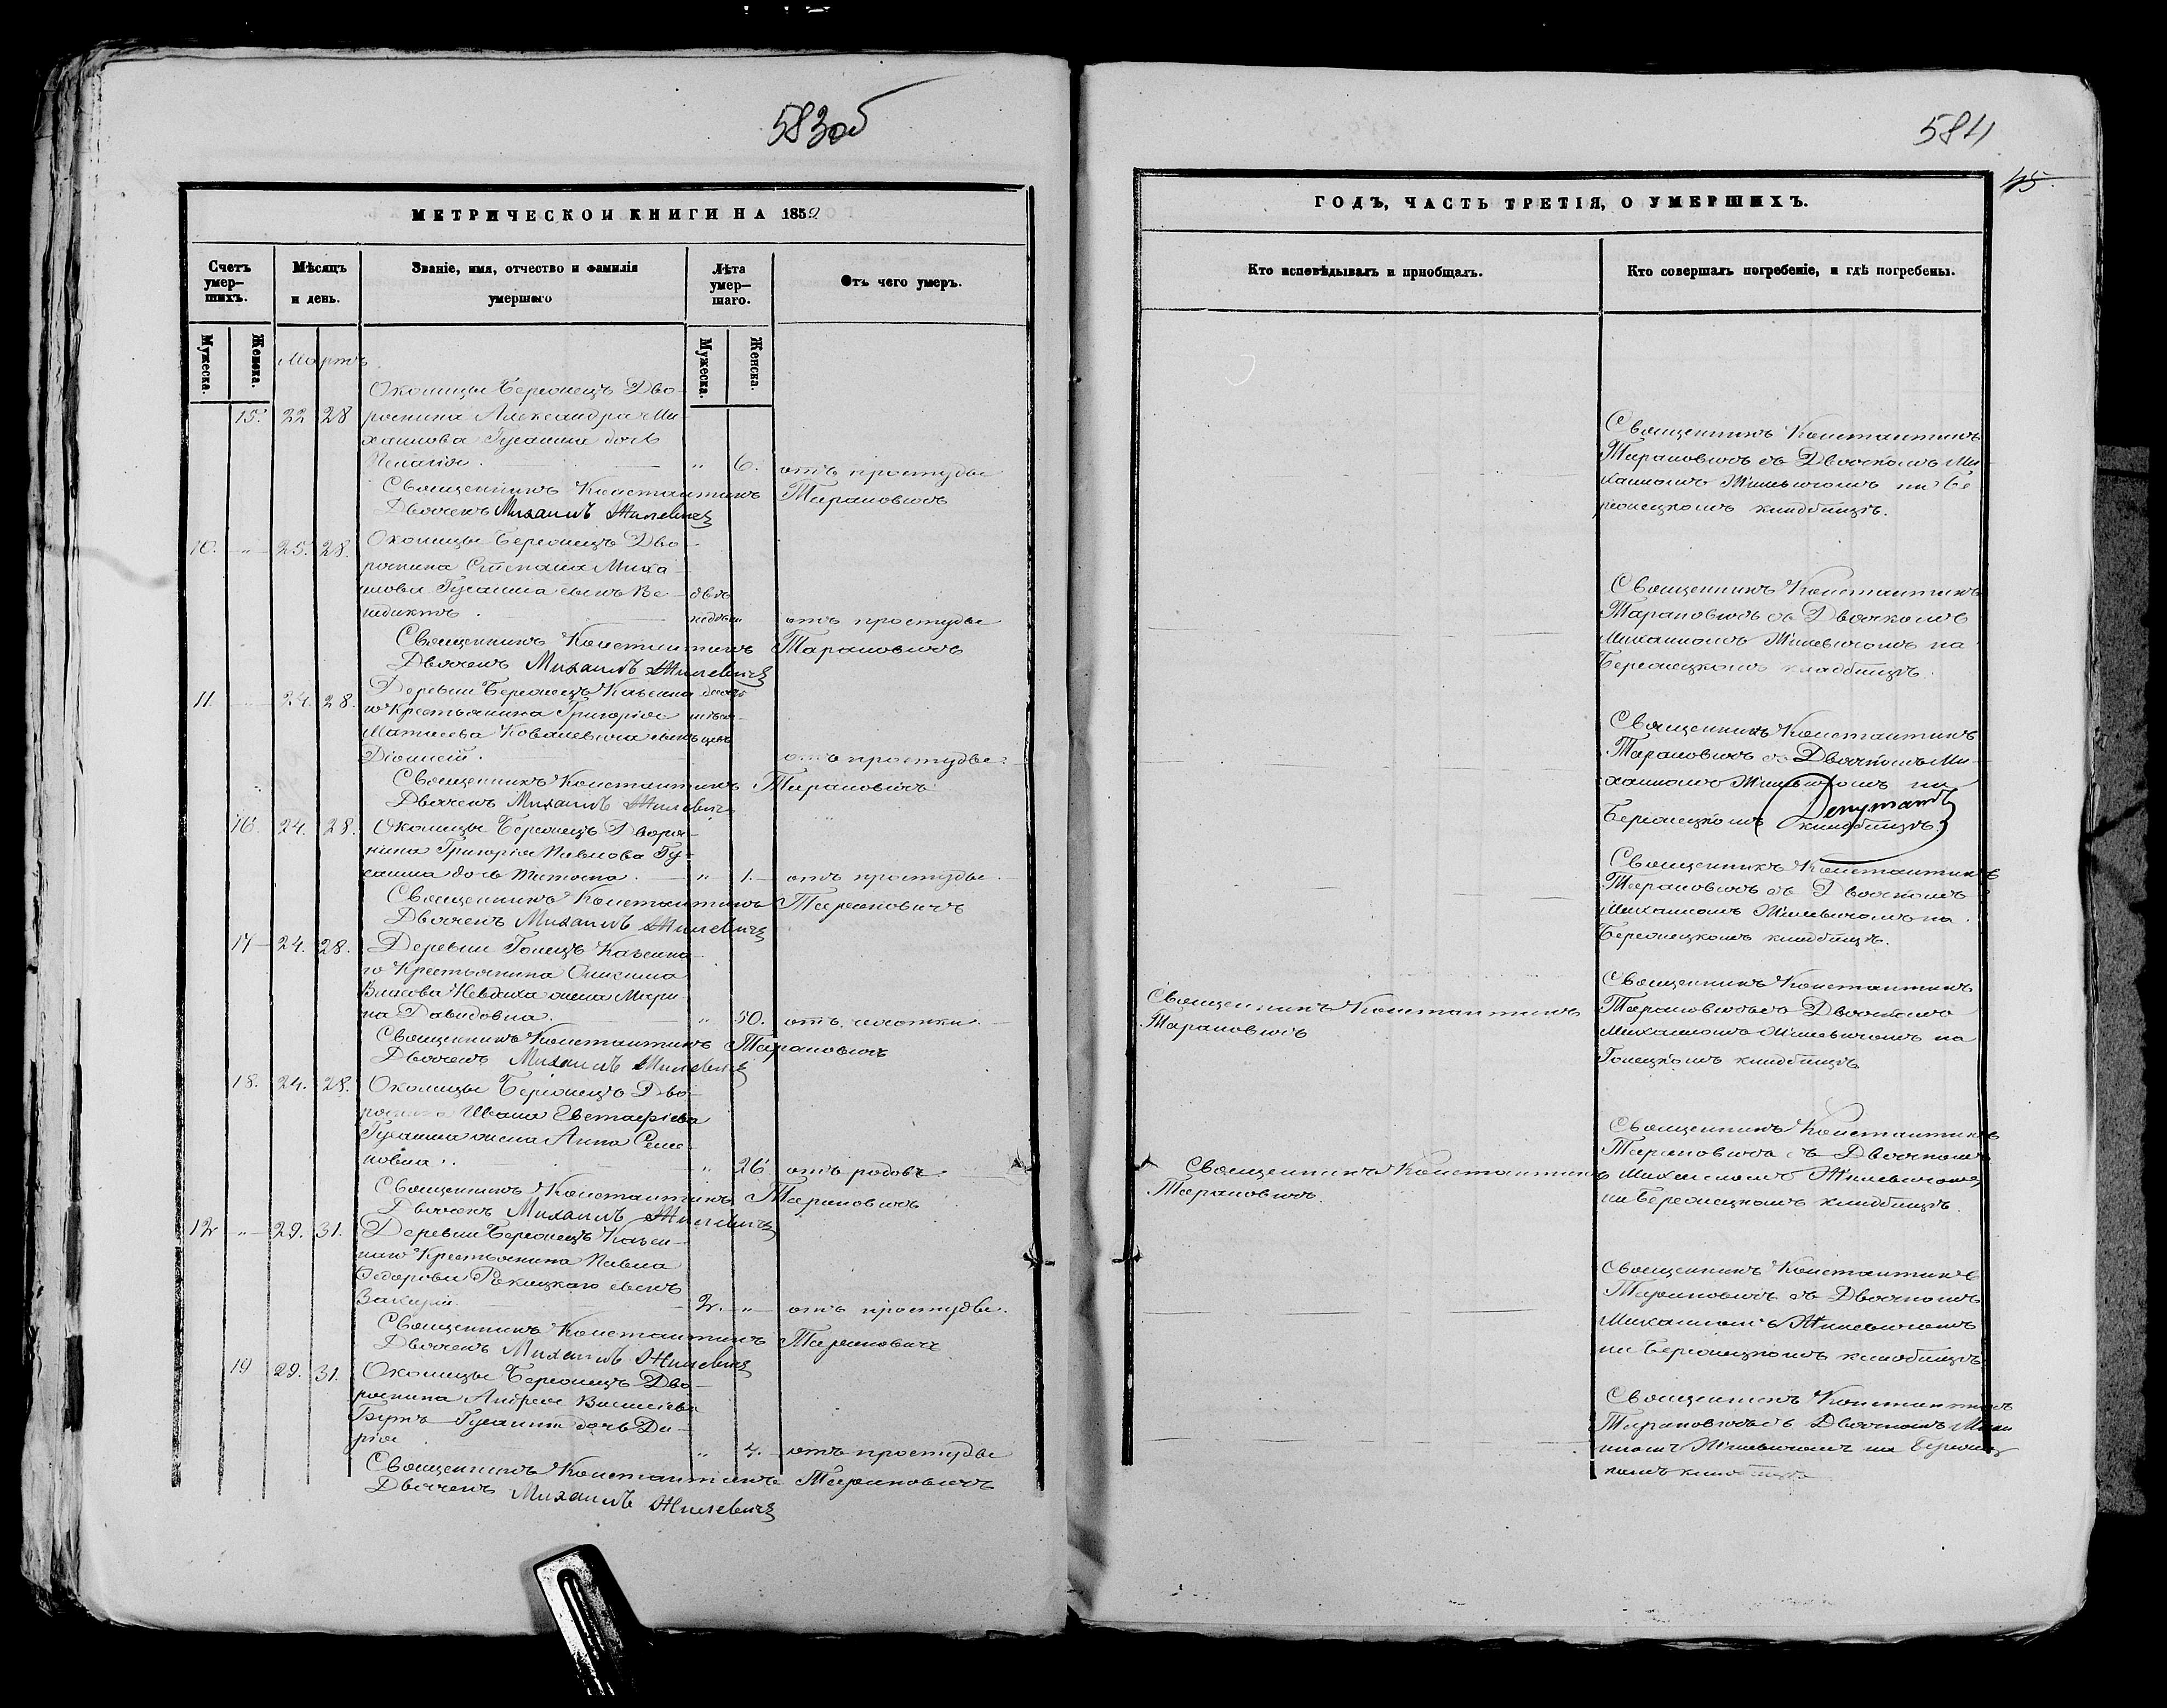 583об
МЕТРИЧЕСКОЙ КНИГИ НА 1852
Счетъ умер-шихъ.
Мѣсяцъ и день.
Званіе, имя, отчество и фамилія умершаго
Лѣта умер-шаго.
Отъ чего умеръ.
Мужеска.
Женска.
Мужеска.
Женска.
Мартъ
15. 22 28
Околицы Березнецъ Дво-
рянина Александра Ми-
хаилова Гусаима дочь
Пелагія. " 6. отъ простуды
Священникъ Константинъ Тарановичъ
Дьячекъ Михаилъ Жилевичъ
10. " 25. 28.
Дво-
рянина Степана Миха-
илова сынъ Ве-
недиктъ. двѣ недѣли отъ простуды
Священникъ Константинъ Тарановичъ
Дьячекъ Михаилъ Жилевичъ
11. 24. 28.
Деревни Казенна-
го Крестьянина Григорія
Матвеева Ковалевича сынъ
Діонисій. отъ простуды
Священникъ Константинъ Тарановичъ
Дьячекъ Михаилъ Жилевичъ
16. 24. 28.
Околицы Дворя-
нина Григорія Павлова
дочь " 1. отъ простуды
Священникъ Константинъ Тарановичъ
Дьячекъ Михаилъ Жилевичъ
17 24. 28.
Деревни Голецъ Казенна-
го Крестьянина
Власова жена Мари-
на Давидовна. " 50. отъ чахотки.
Священникъ Константинъ Тарановичъ
Дьячекъ Михаилъ Жилевичъ
18. 24. 28.
Околицы Дво-
рянина Ивана Евстафіева
жена Анна Семе-
новна. " 26 отъ родовъ.
Священникъ Константинъ Тарановичъ
Дьячекъ Михаилъ Жилевичъ
12 " 29. 31.
Деревни Казен-
наго Крестьянина Павла
Федорова Ракицкаго сынъ
Захарій. 2. " отъ простуды.
Священникъ Константинъ Тарановичъ
Дьячекъ Михаилъ Жилевичъ
19 29. 31.
Околицы Дво-
рянина Андрея Васильева
дочь Да-
рія " 4. отъ простуды
Священникъ Константинъ Тарановичъ
Дьячекъ Михаилъ Жилевичъ
584
45.
ГОДЪ, ЧАСТЬ ТРЕТІЯ, О УМЕРШИХЪ.
Кто исповѣдывалъ и пріобщалъ.
Кто совершалъ погребеніе, и гдѣ погребены.
Священникъ Константинъ
Тарановичъ съ Дьячкомъ Ми-
хаиломъ Жилевичомъ на
кладбищѣ.
Священникъ Константинъ
Тарановичъ съ Дьячкомъ
Михаиломъ Жилевичомъ на
кладбищѣ.
Священникъ Константинъ
Тарановичъ съ Дьячкомъ Ми-
хаиломъ Жилевичомъ на
кладбищѣ.
Депутатъ
Священникъ Константинъ
Тарановичъ съ Дьячкомъ
Михаиломъ Жилевичомъ на
кладбищѣ.
Священникъ Константинъ
Тарановичъ
Священникъ Константинъ
Тарановичъ съ Дьячкомъ
Михаиломъ Жилевичомъ на
Голецкомъ кладбищѣ
Священникъ Константинъ
Тарановичъ.
Священникъ Константинъ
Тарановичъ съ Дьячкомъ
Михаиломъ Жилевичомъ
на кладбищѣ.
Священникъ Константинъ
Тарановичъ съ Дьячкомъ
Михаиломъ Жилевичомъ
на кладбищѣ
Священникъ Константинъ
Тарановичъ съ Дьячкомъ Миха-
иломъ Жилевичомъ на
кладбищѣ